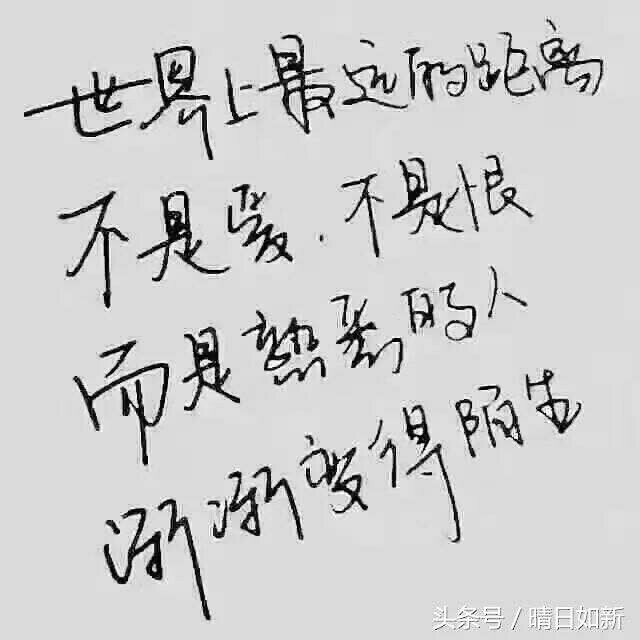 世界上最远的距离
不是爱.不是恨
而是熟悉的人
渐渐变得陌生
头条号 / 晴日如新